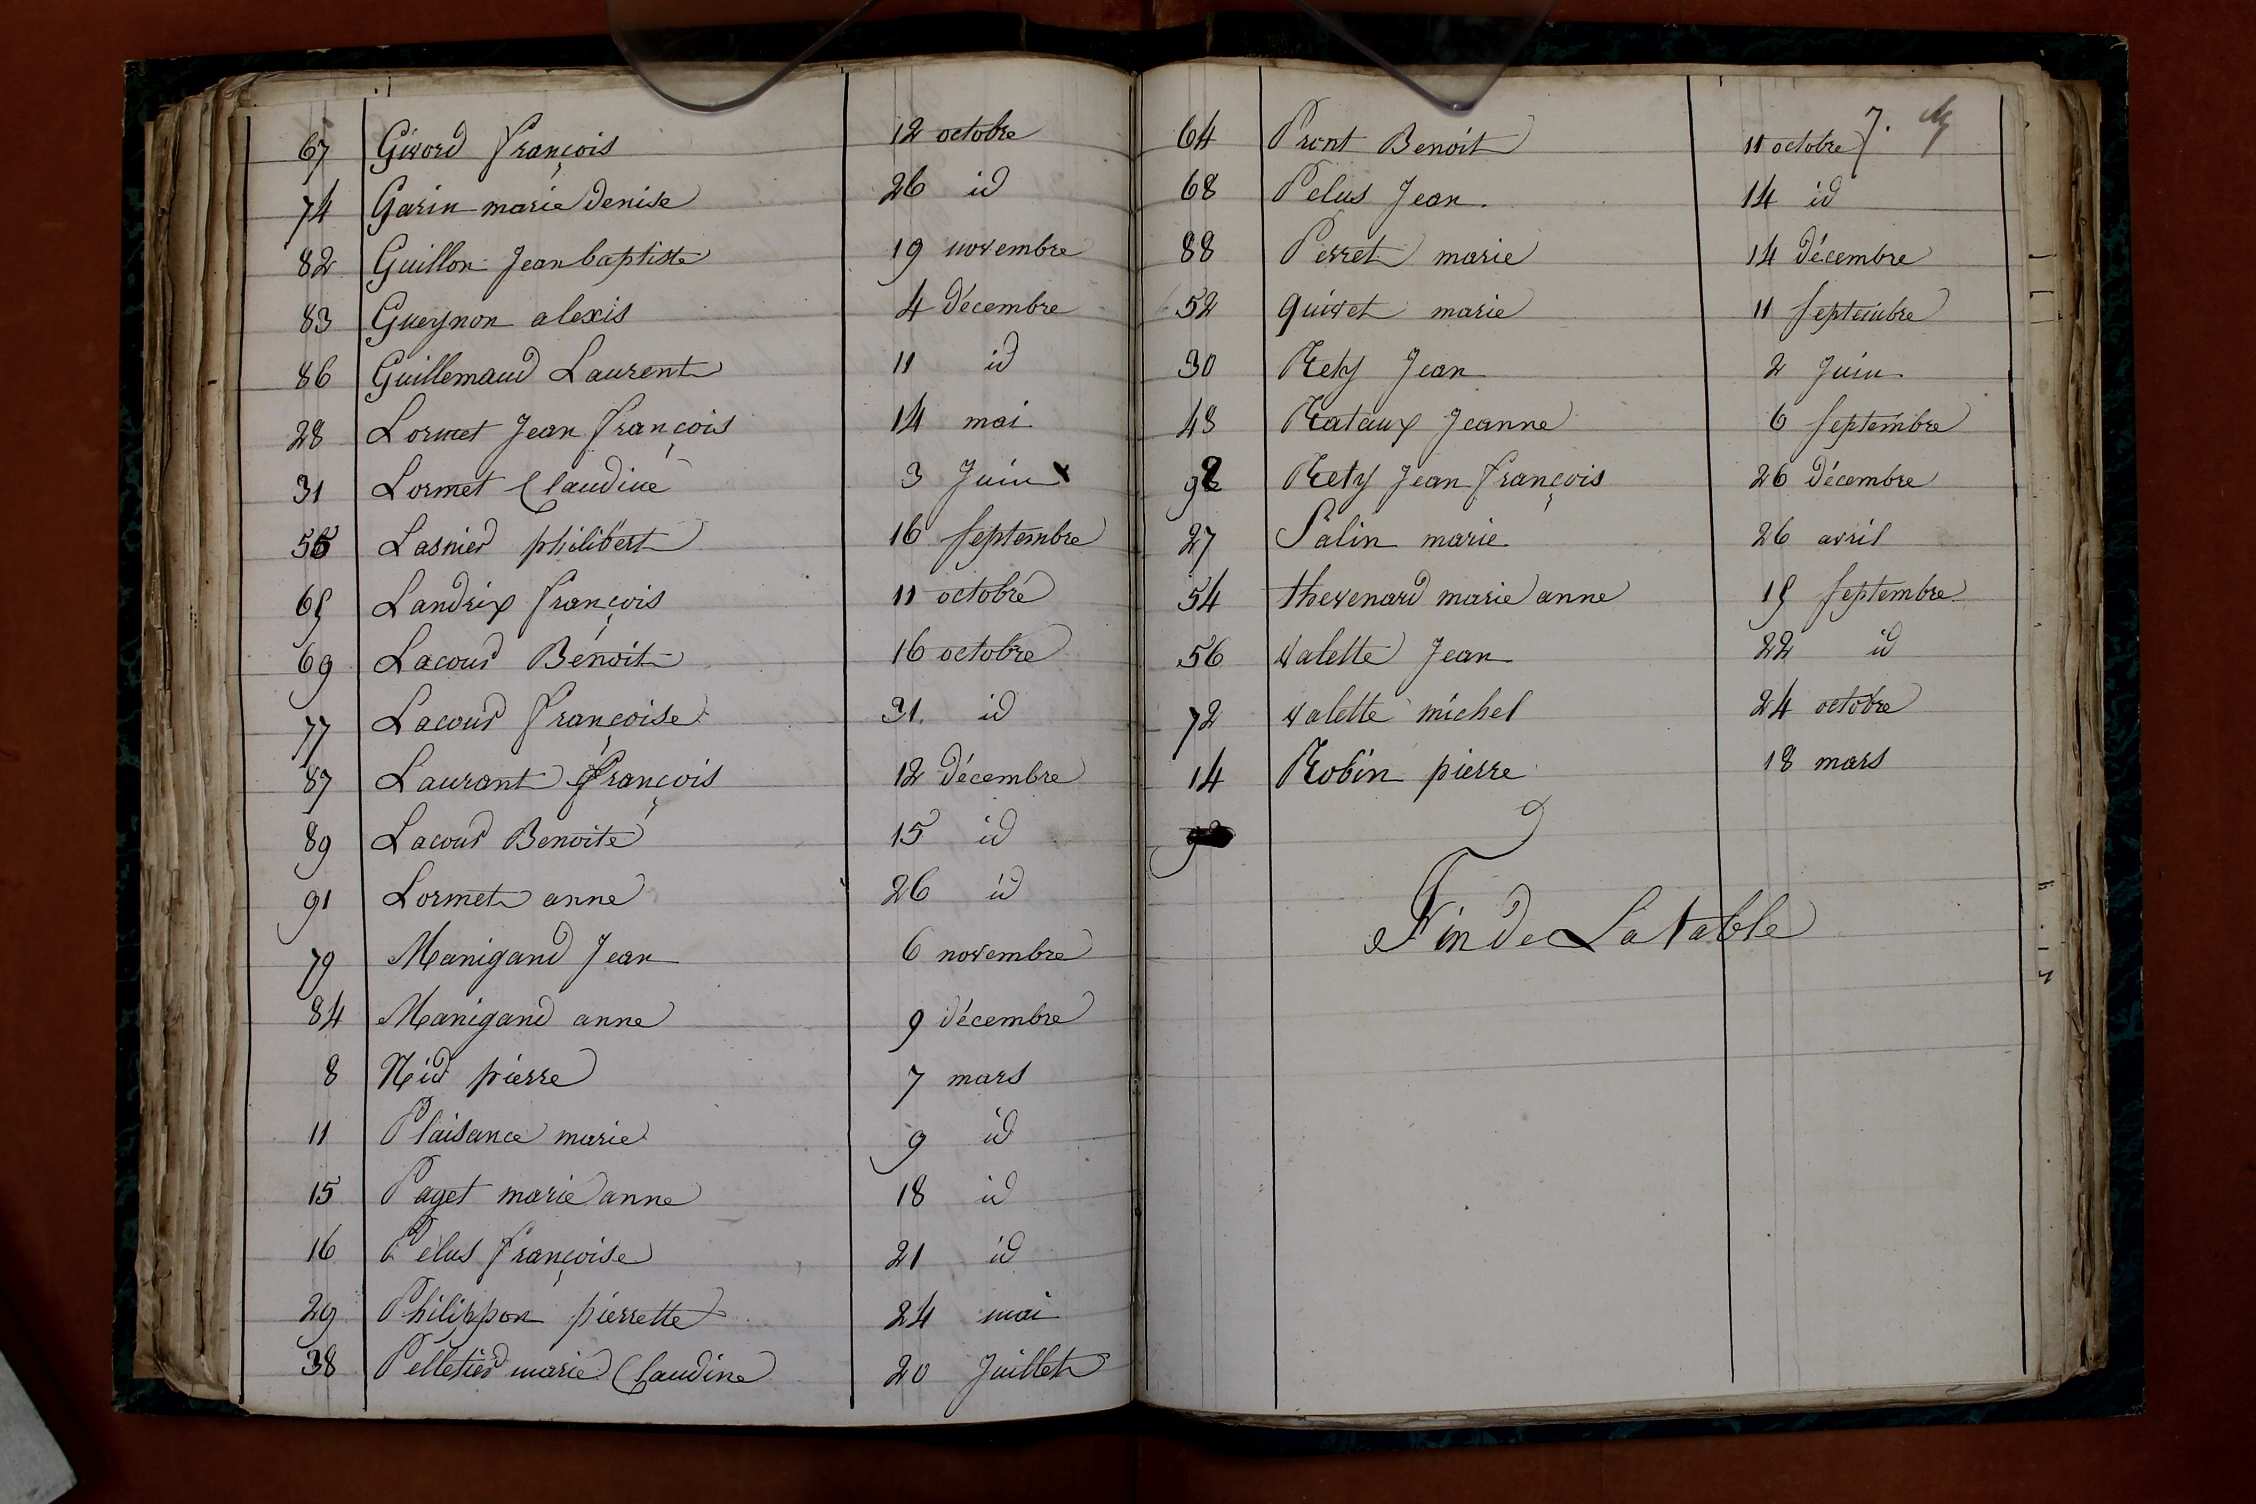 67 Givord françois 12 octobre
74 Garin marie denise 26 id
82 Guillon Jean baptiste 19 novembre
83 Gueynon alexis 4 décembre
86 Guillemaud Laurent 11 id
28 Lormet Jean françois 14 mai
31 Lormet Claudine 3 Juin
55 Lasnier philibert 16 septembre
65 Landrix françois 11 octobre
69 Lacour Benoit 16 octobre
77 Lacour françoise 31 id
87 Laurant françois 12 décembre
89 Lacour Benoite 15 id
91 Lormet anne 26 id
79 Manigand Jean 6 novembre
84 Manigand anne 9 décembre
8 Nid pierre 7 mars
11 Plaisance marie 9 id
15 Paget marie anne 18 id
16 Pelus françoise 21 id
29 Philippon pierrette 24 mai
38 Pelletier marie Claudine 20 Juillet
7.
64 Pront Benoit 11 octobre
68 Pelus Jean. 14 id
88 Perret marie 14 décembre
52 quivet marie 11 septembre
30 Rety Jean 2 Juin
48 Rataux Jeanne 6 septembre
92 Rety Jean françois 26 décembre
27 Salin marie 26 avril
54 thevenard marie anne 15 septembre
56 valette Jean 22 id
72 valette michel 24 octobre
14 Robin pierre 18 mars
Fin de La table